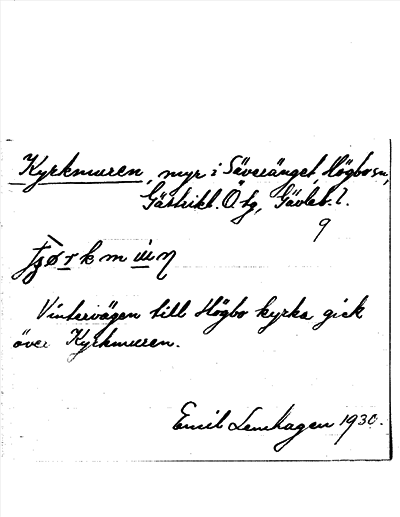 Kyrkmuren, myr i Säveränget, Högbo sn,
Gästrikl. Ö tg, Gävleb. l.
9
Vintervägen till Högbo kyrka gick
över Kyrkmuren.
Emil Lenhagen 1930.